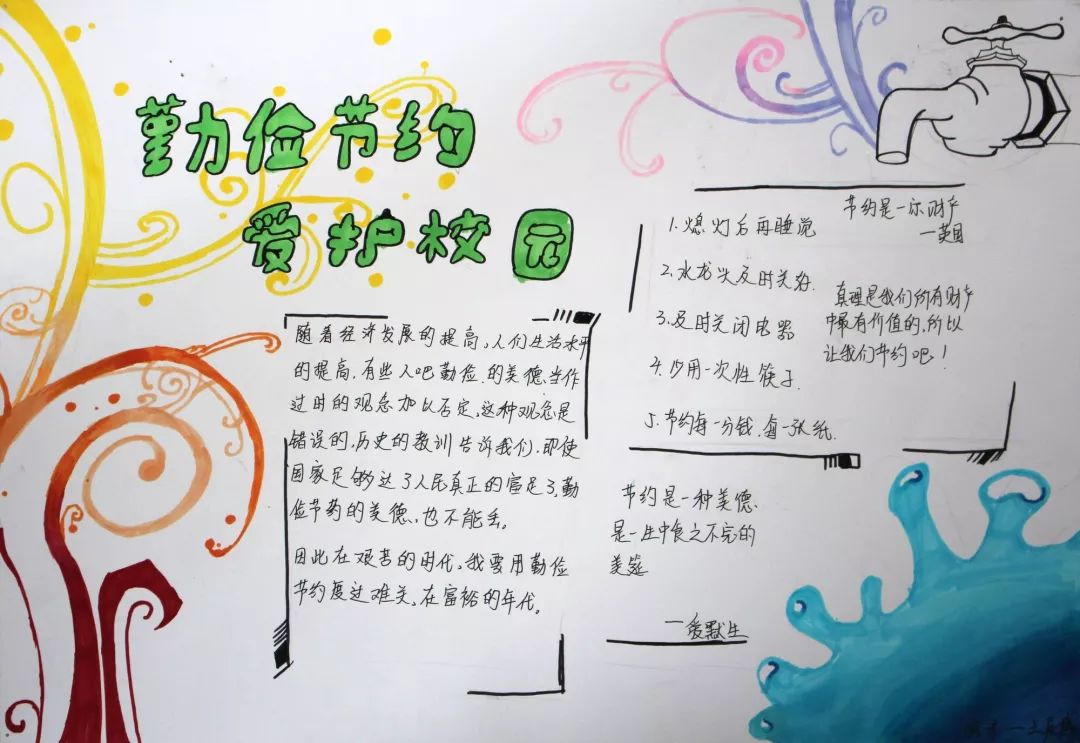 勤俭节约
爱护校园
随着经济发展的提高,人们生活水平
的提高,有些人吧勤俭的美德当作
过时的观念加以否定,这种观念是
错误的,历史的教训告诉我们,即使
国家足够达了人民真正的富足了,勤
俭节药的美德,也不能丢。
因此在艰苦的时代,我要用勤俭
节约度过难关,在富裕的年代。
1.熄灯后再睡觉
2.水龙头及时关好.
3.及时关闭电器
4.少用一次性筷子.
5.节约每一分钱,每一张纸.
节约是一
财产
一英国
真理是我们所有财产
中最有价值的,所以
让我们节约吧!
节约是一种美德
是一生中食之不完的
美筵
一爱默生